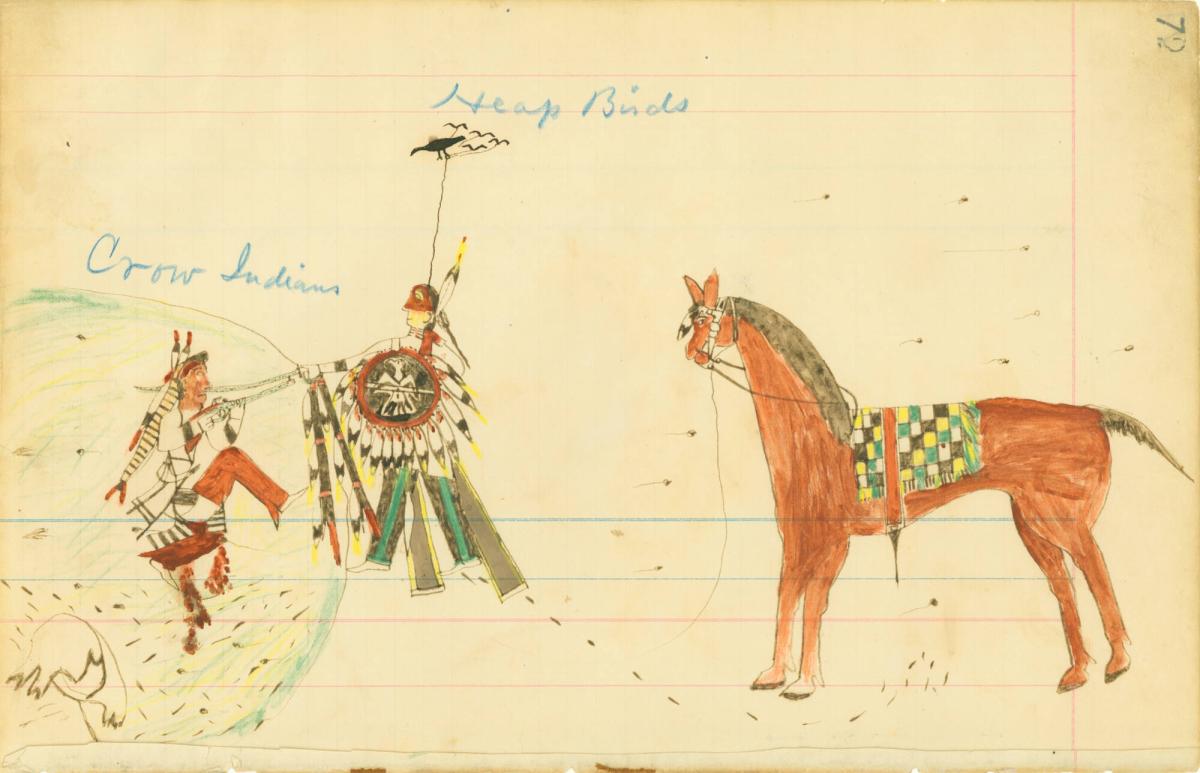 Heap Birds
Crow Indians